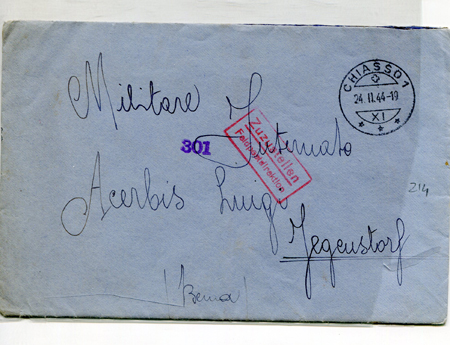 CHIASSO 1
24.II.44-19
XI
Militare I
301
Internato
Zuzustellen
Feldpostdirektion
Acerbis Luigi
214
Jegenstorf
(Berna)